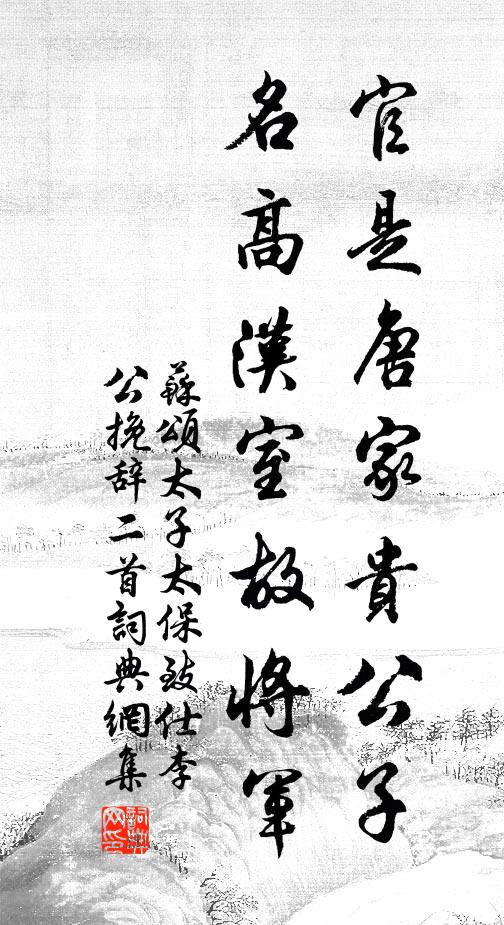 官是唐家貴公子
名高漢室故將軍
蘇頌太子太保致仕李
公挽辞二首詞典網集